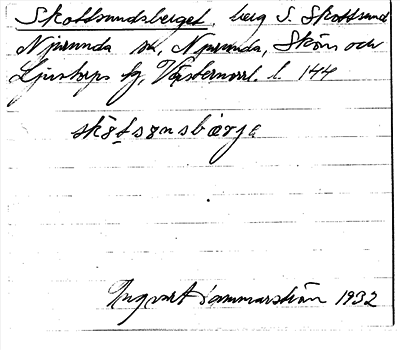 Skottsundsberget, berg S. Skottsund
Njurunda sn, Njurunda, Sköns och
Ljustorps tg, Västernorrl. l. 144
skå̀tsɷnsbærjə
Ingvar Hammarström 1932